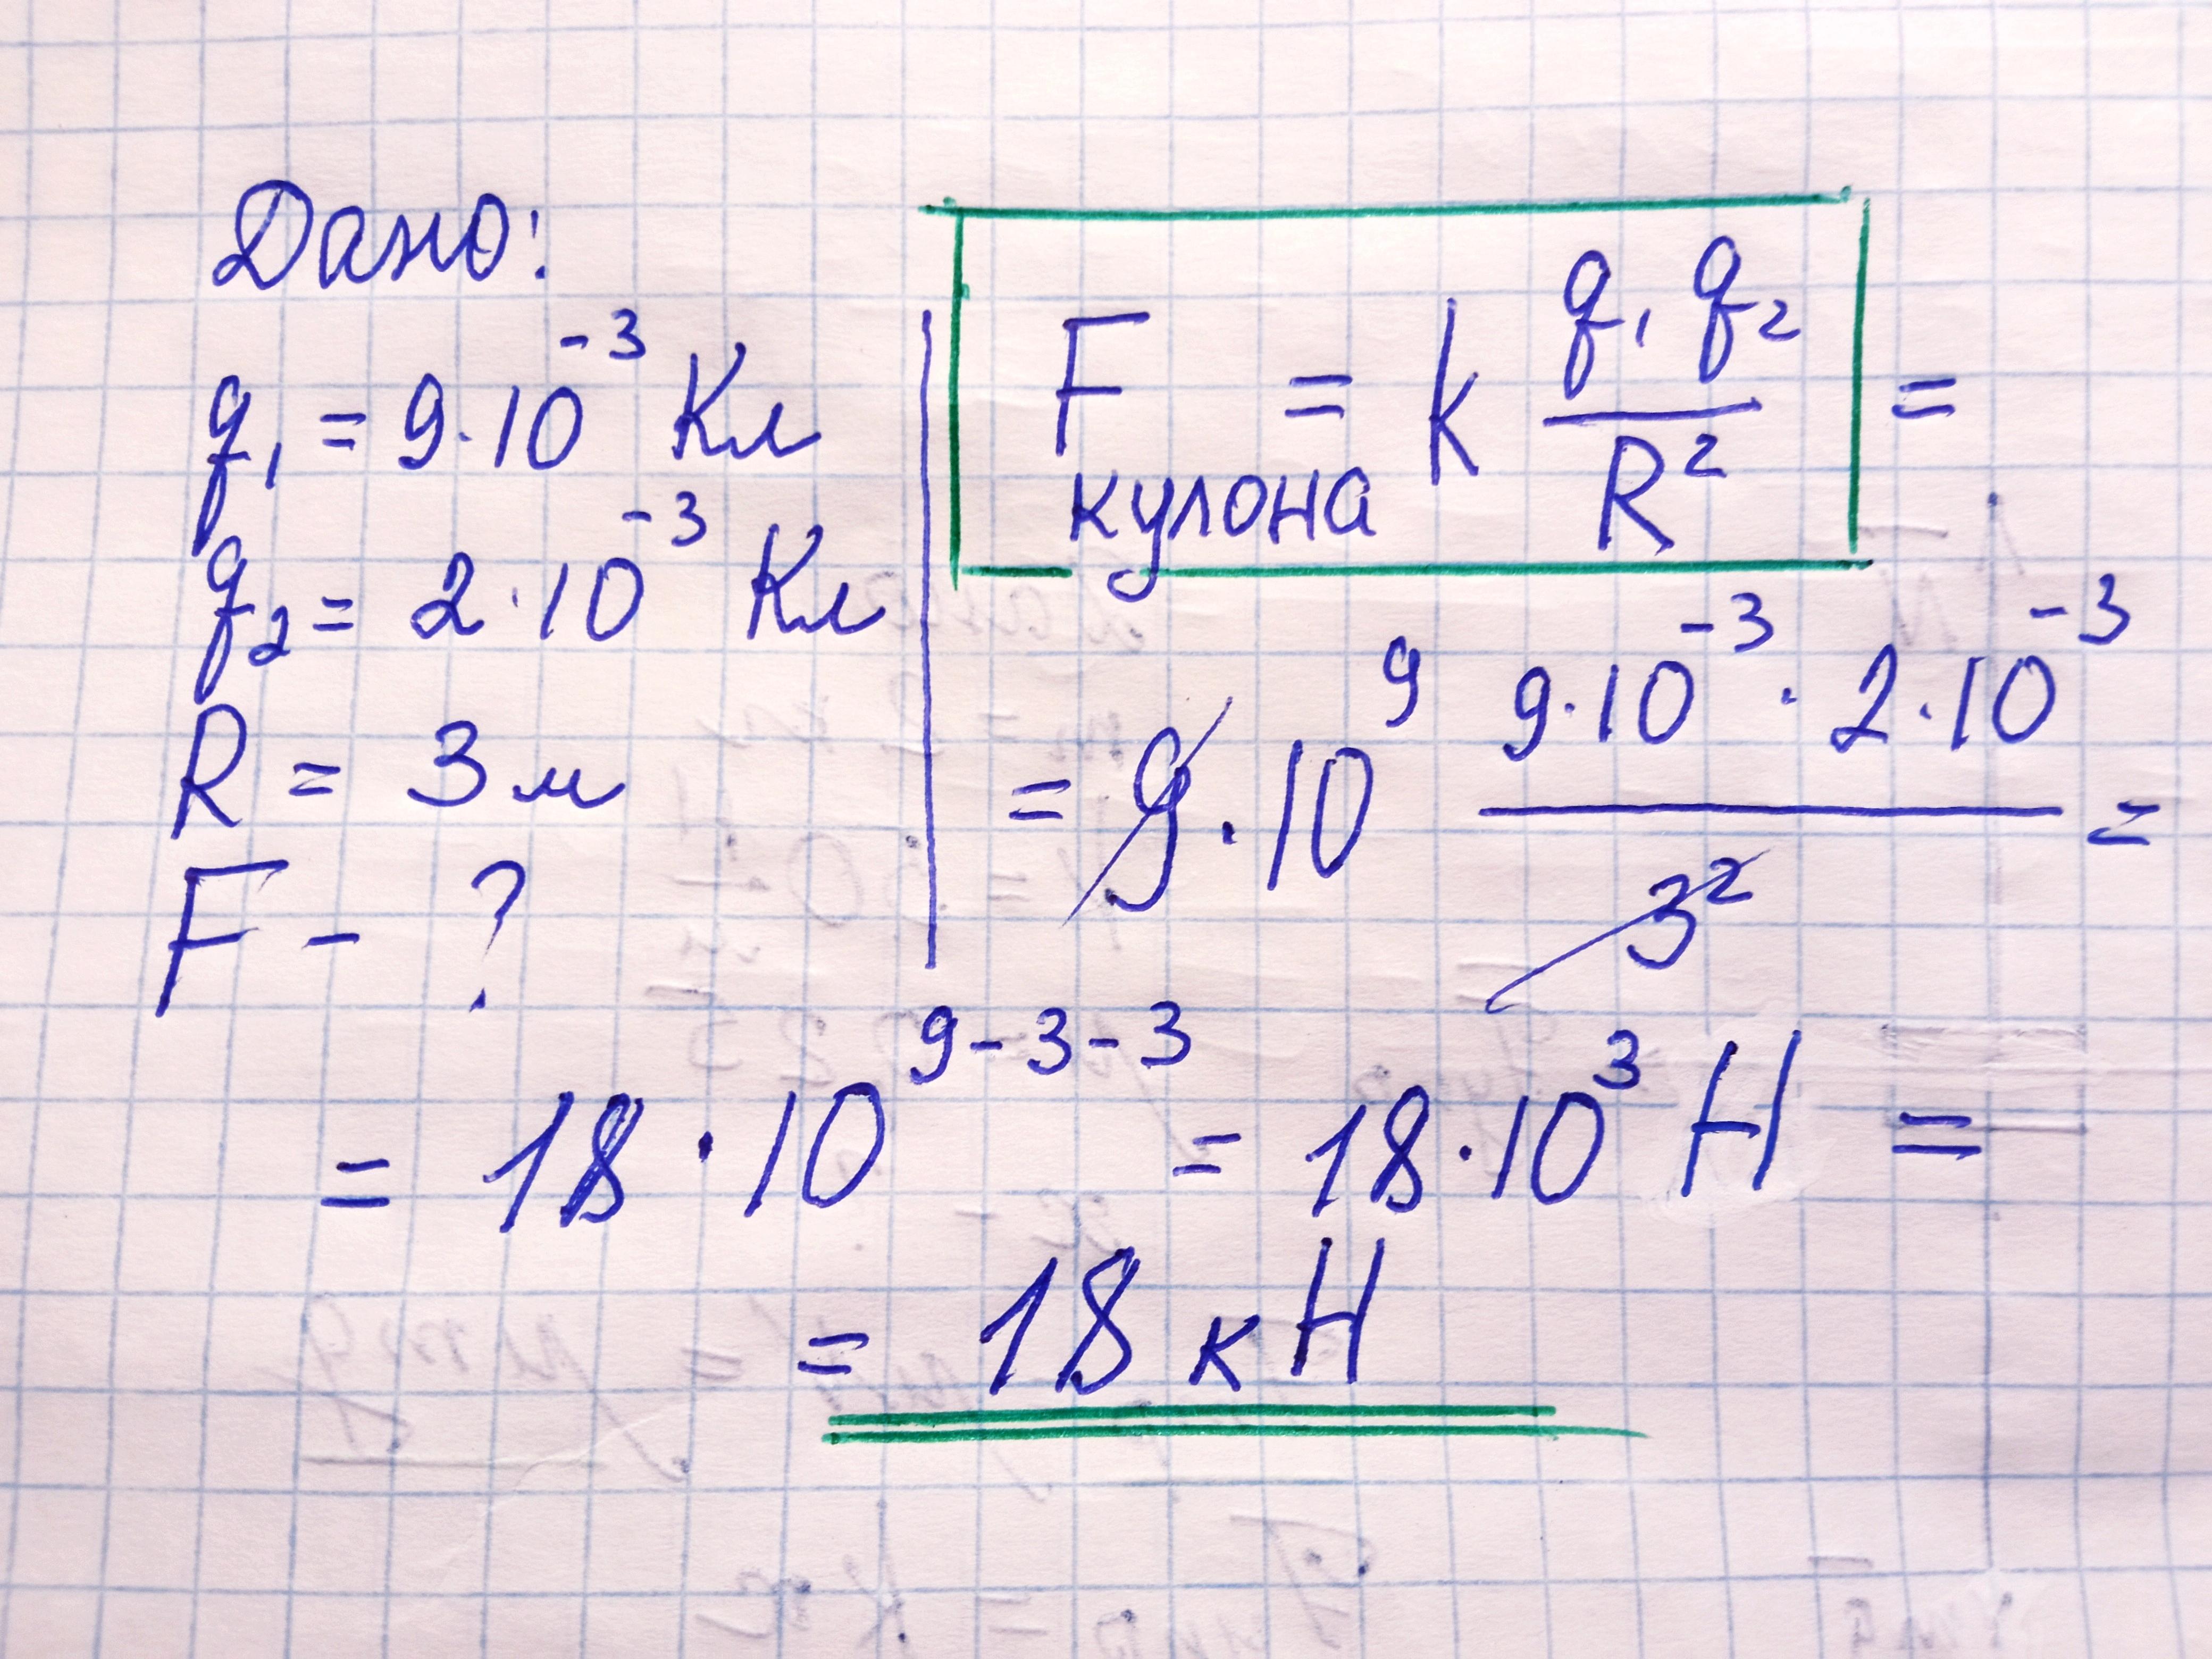 Дано:
q₁ = 9·10⁻³ Кл
q₂ = 2·10⁻³ Кл
R = 3 м
F - ?
F кулона = k q₁ q₂ / R² =
= 9·10⁹ 9·10⁻³ · 2·10⁻³ / 3² =
= 18·10⁹⁻³⁻³ = 18·10³ Н =
= 18 кН